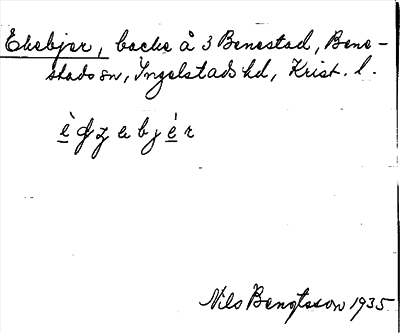 Ekebjer, backe å 3 Benestad, Bene-
stads sn, Ingelstads hd, Krist. l.
è gz a b j é r
Nils Bengtsson 1935